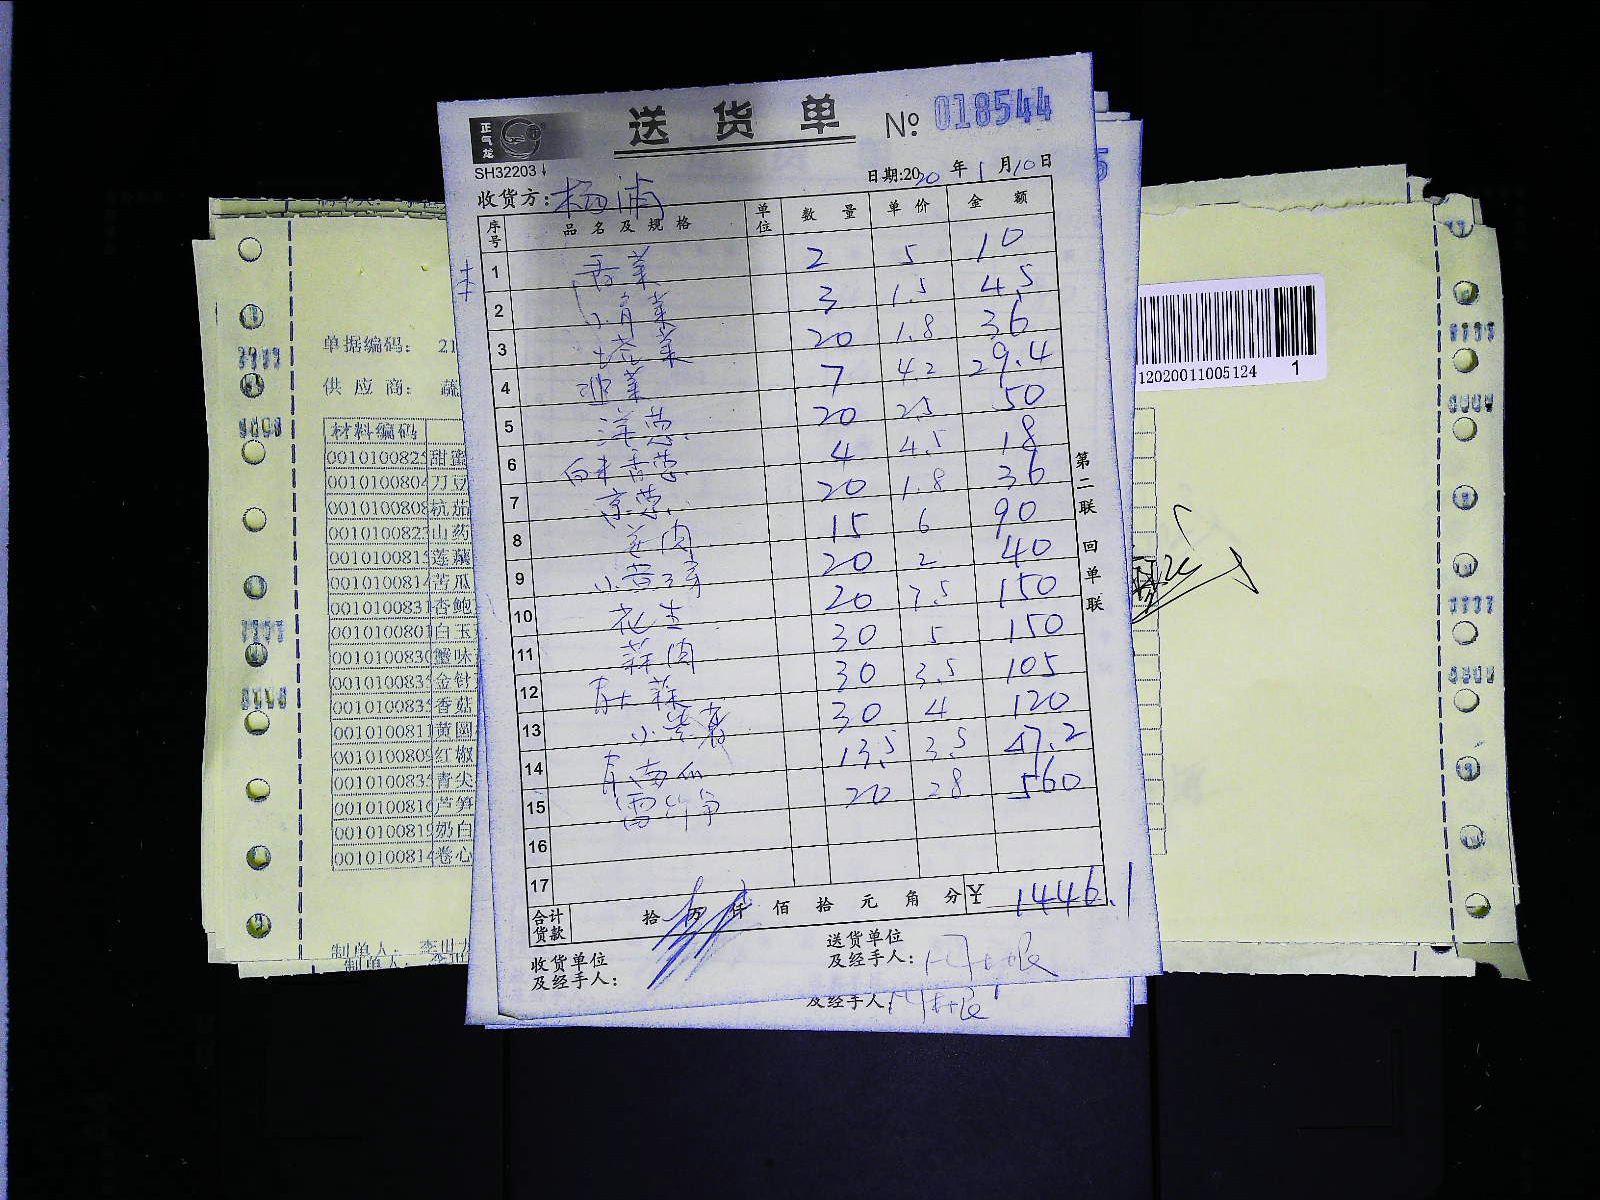 正气龙
SH32203
送货单 № 018544
日期:2020年1月10日
收货方: 杨浦
序号 品名及规格 单位 数量 单价 金额
1 香菜 2 5 10
2 小青菜 3 1.5 4.5
3 塔菜 20 1.8 36
4 韭菜 7 4.2 29.4
5 洋葱 20 2.5 50
6 向未香葱 4 4.5 18
7 京葱 20 1.8 36
8 姜肉 15 6 90
9 小黄 20 2 40
10 花生 20 7.5 150
11 蒜肉 30 5 150
12 青大蒜 30 3.5 105
13 小 30 4 120
14 青南瓜 13.5 3.5 47.2
15 雷竹笋 20 28 560
16
17
合计货款 拾 万 仟 佰 拾 元 角 分 ¥ 1446.1
收货单位及经手人:
送货单位及经手人:
第二联 回单联
及经手人
单据编码: 21
供应商: 蔬
材料编码
0010100825 甜蜜
001010080 刀豆
0010100808 杭茄
001010082 山药
001010081 莲藕
001010081 苦瓜
001010083 杏鲍
001010080 白玉
001010083 蟹味
001010083 金针
001010083 香菇
001010081 黄圆
001010080 红椒
001010083 青尖
001010081 芦笋
0010100819 奶白
001010081 卷心
制单人: 李世
制单人:
12020011005124 1